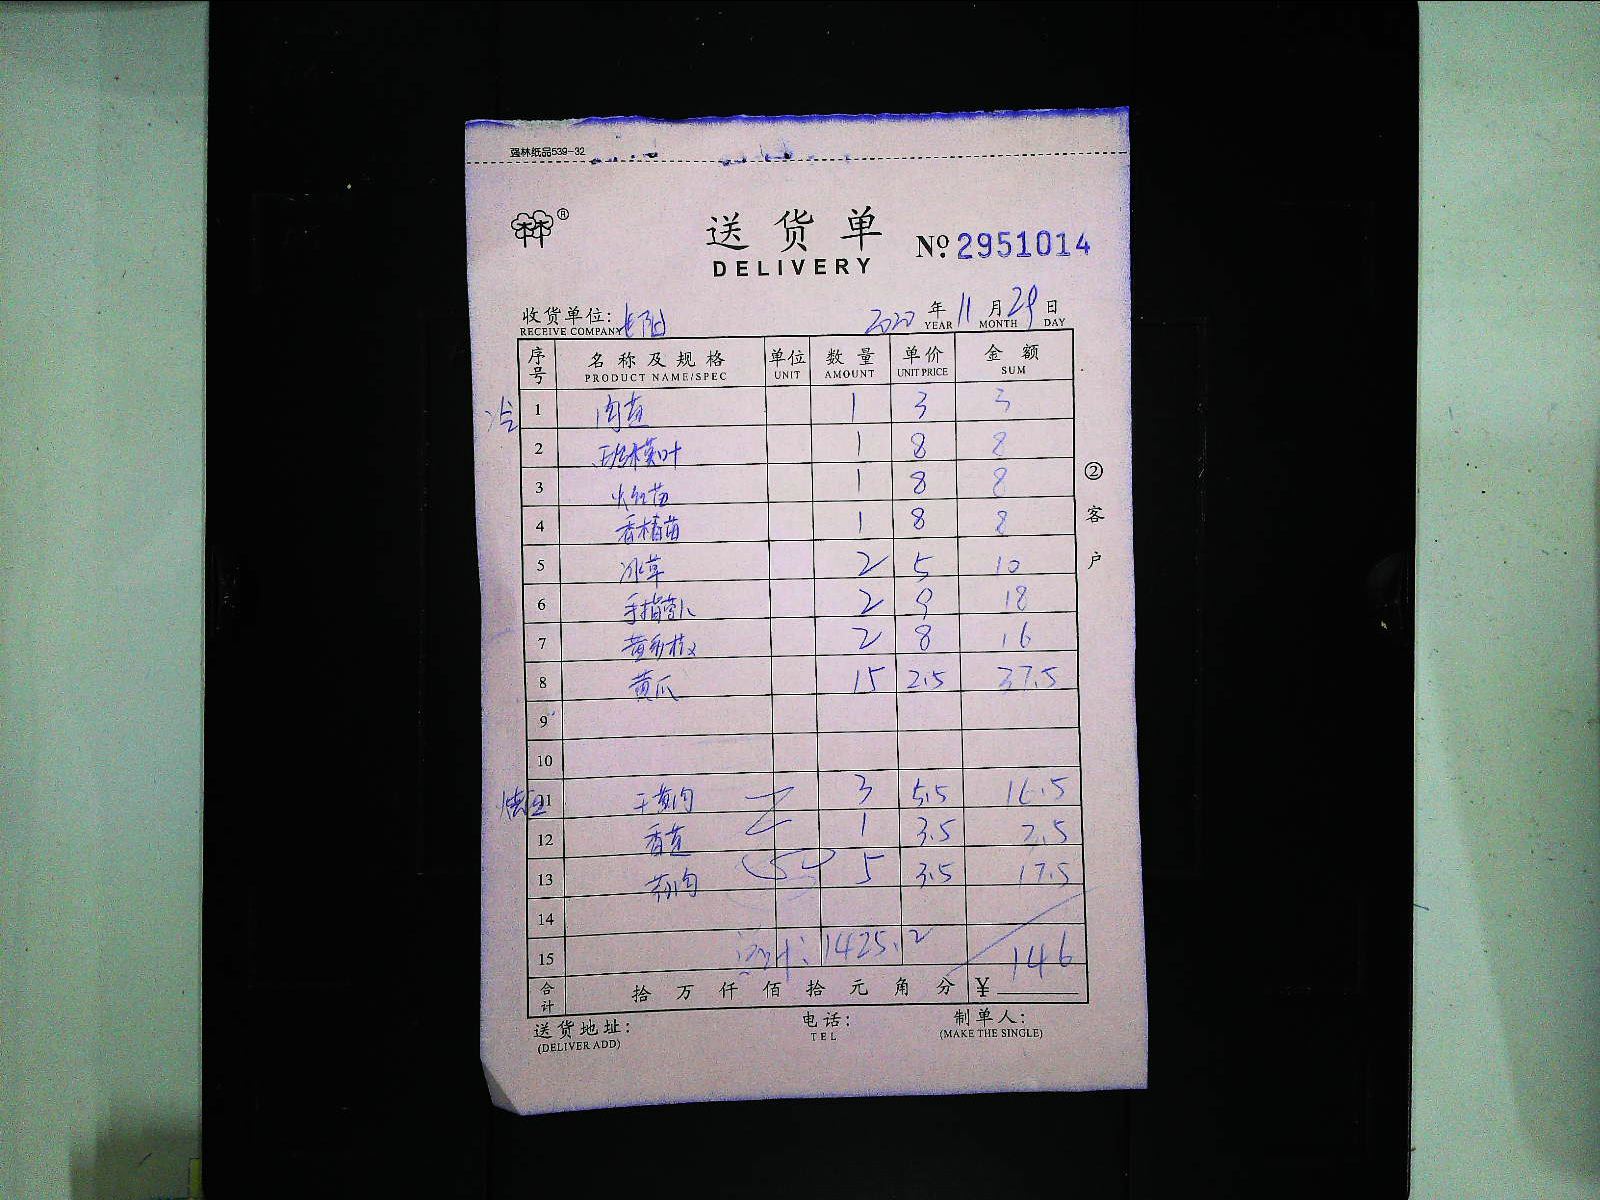 强林纸品539-32
送货单
DELIVERY
№ 2951014
收货单位:
RECEIVE COMPANY
2020 年 11 月 29 日
YEAR MONTH DAY
序号 名称及规格 单位 数量 单价 金额
PRODUCT NAME/SPEC UNIT AMOUNT UNIT PRICE SUM
冷
1 1 3 3
2 1 8 8
3 火红苗 1 8 8
4 香椿苗 1 8 8
5 冰草 2 5 10
6 2 9 18
7 2 8 16
8 黄瓜 15 2.5 37.5
9
10
11 3 5.5 16.5
12 1 3.5 3.5
13 5 3.5 17.5
14
15 总计: 1425.2 146
合计 拾 万 仟 佰 拾 元 角 分 ¥
② 客户
送货地址: 电话: 制单人:
(DELIVER ADD) TEL (MAKE THE SINGLE)